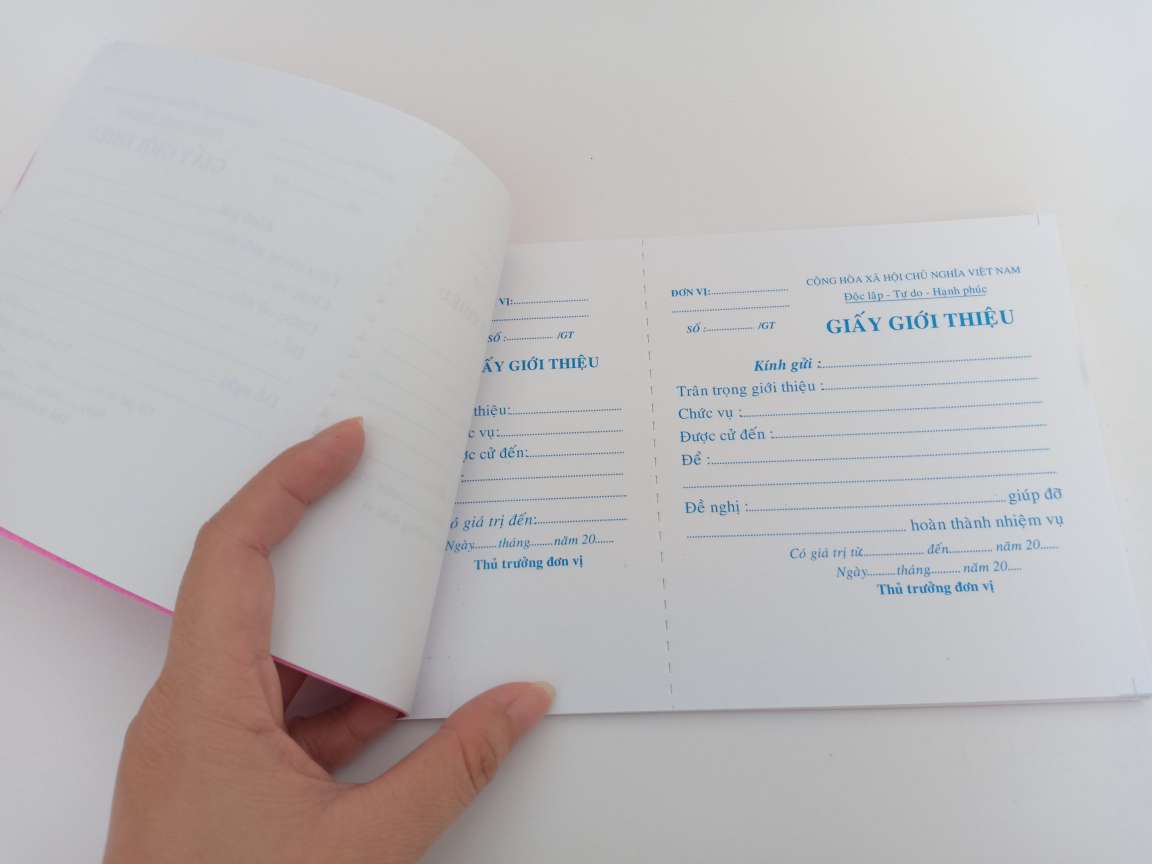 VỊ:
SỐ : /GT
ẤY GIỚI THIỆU
thiệu:
vụ:
cử đến:
:
giá trị đến:
Ngày........tháng........năm 20......
Thủ trưởng đơn vị
CỘNG HÒA XÃ HỘI CHỦ NGHĨA VIỆT NAM
ĐƠN VỊ:
Độc lập - Tự do - Hạnh phúc
SỐ : /GT
GIẤY GIỚI THIỆU
Kính gửi :
Trân trọng giới thiệu :
Chức vụ :
Được cử đến :
Để :
Đề nghị : giúp đỡ
hoàn thành nhiệm vụ
Có giá trị từ.................... đến............... năm 20......
Ngày..........tháng.......... năm 20.....
Thủ trưởng đơn vị